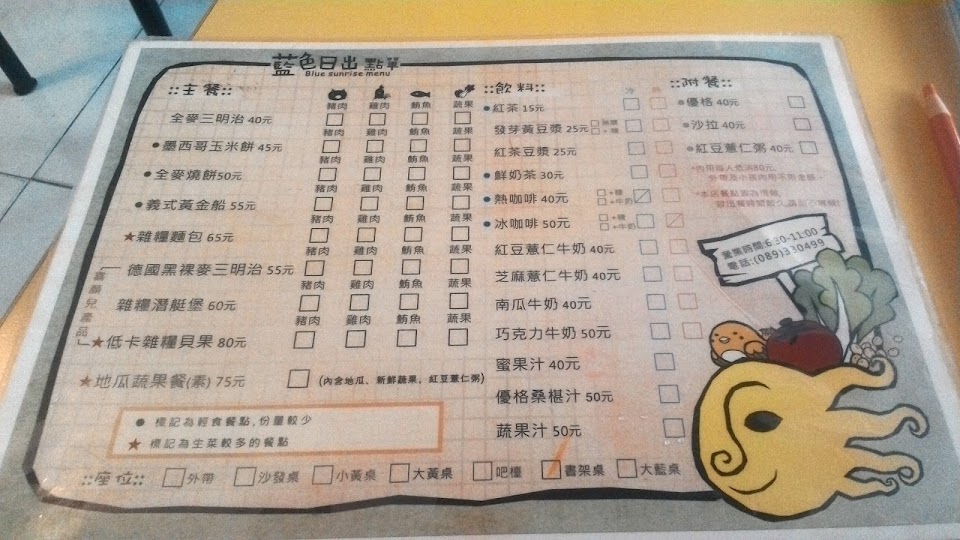 藍色日出 點單
Blue sunrise menu
::主餐::
豬肉 雞肉 鮪魚 蔬果
全麥三明治 40元
豬肉 雞肉 鮪魚 蔬果
●墨西哥玉米餅 45元
豬肉 雞肉 鮪魚 蔬果
●全麥燒餅50元
豬肉 雞肉 鮪魚 蔬果
●義式黃金船 55元
豬肉 雞肉 鮪魚 蔬果
★雜糧麵包 65元
豬肉 雞肉 鮪魚 蔬果
德國黑裸麥三明治 55元
豬肉 雞肉 鮪魚 蔬果
雜糧潛艇堡 60元
豬肉 雞肉 鮪魚 蔬果
★低卡雜糧貝果 80元
★地瓜蔬果餐(素) 75元
(內含地瓜、新鮮蔬果，紅豆薏仁粥)
● 標記為輕食餐點，份量較少
★ 標記為生菜較多的餐點
::飲料::
冷 熱
●紅茶 15元
發芽黃豆漿 25元 無糖 +糖
紅茶豆漿 25元
●鮮奶茶 30元
●熱咖啡 40元 +糖 +牛奶
●冰咖啡 50元 +糖 +牛奶
紅豆薏仁牛奶 40元
芝麻薏仁牛奶 40元
南瓜牛奶 40元
巧克力牛奶 50元
蜜果汁 40元
優格桑椹汁 50元
蔬果汁 50元
::附餐::
●優格 40元
●沙拉 40元
●紅豆薏仁粥 40元
*內用每人低消80元,
外帶及小孩內用不限金額。
*本店餐點皆為現做,
營業時間:6:30-11:00
電話:(089)330499
::座位::
外帶 沙發桌 小黃桌 大黃桌 吧檯 書架桌 大藍桌